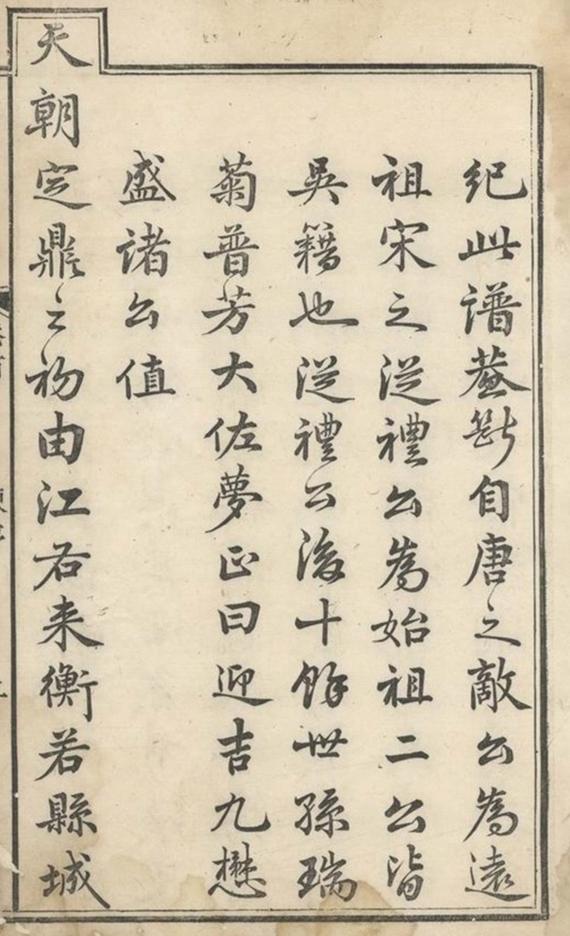 紀此譜蓋斷自唐之敵公為遠
祖宋之從禮公為始祖二公皆
吳籍也從禮公後十餘世孫瑞
菊普芳大佐夢正曰迎吉九懋
盛諸公值
天朝定鼎之初由江右來衡若縣城